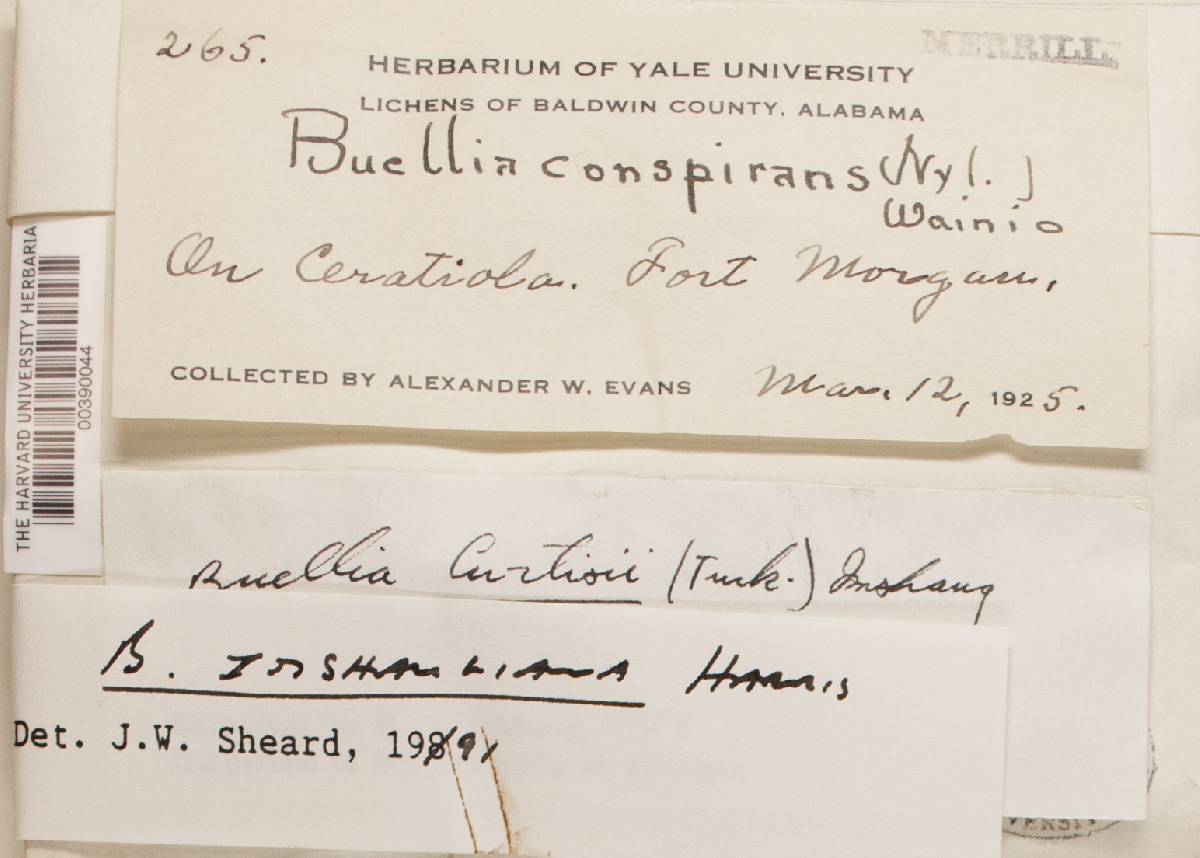 265.
MERRILL
HERBARIUM OF YALE UNIVERSITY
LICHENS OF BALDWIN COUNTY, ALABAMA
Buellia conspirans (Nyl.)
Wainio
On Ceratiola. Fort Morgan,
COLLECTED BY ALEXANDER W. EVANS Mar. 12, 1925.
THE HARVARD UNIVERSITY HERBARIA
00390044
Buellia Curtisii (Tuck.) Imshaug
B. IMSHAUGIANA HARRIS
Det. J.W. Sheard, 1991